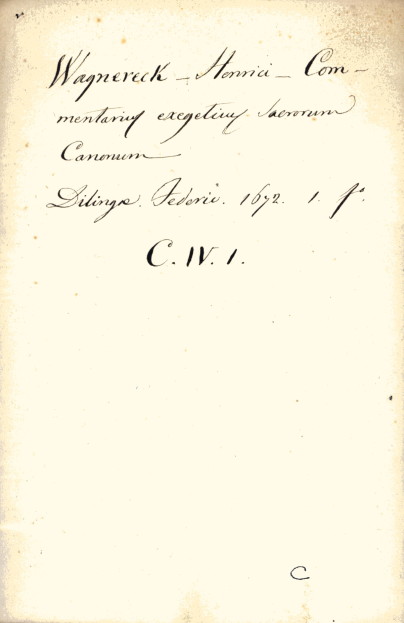 Wagnereck – Henrici – Com–
mentarius exegeticus sacrorum
Canonum
Dilingæ. Federic. 1672. 1. fº.
C. IV. 1.
C